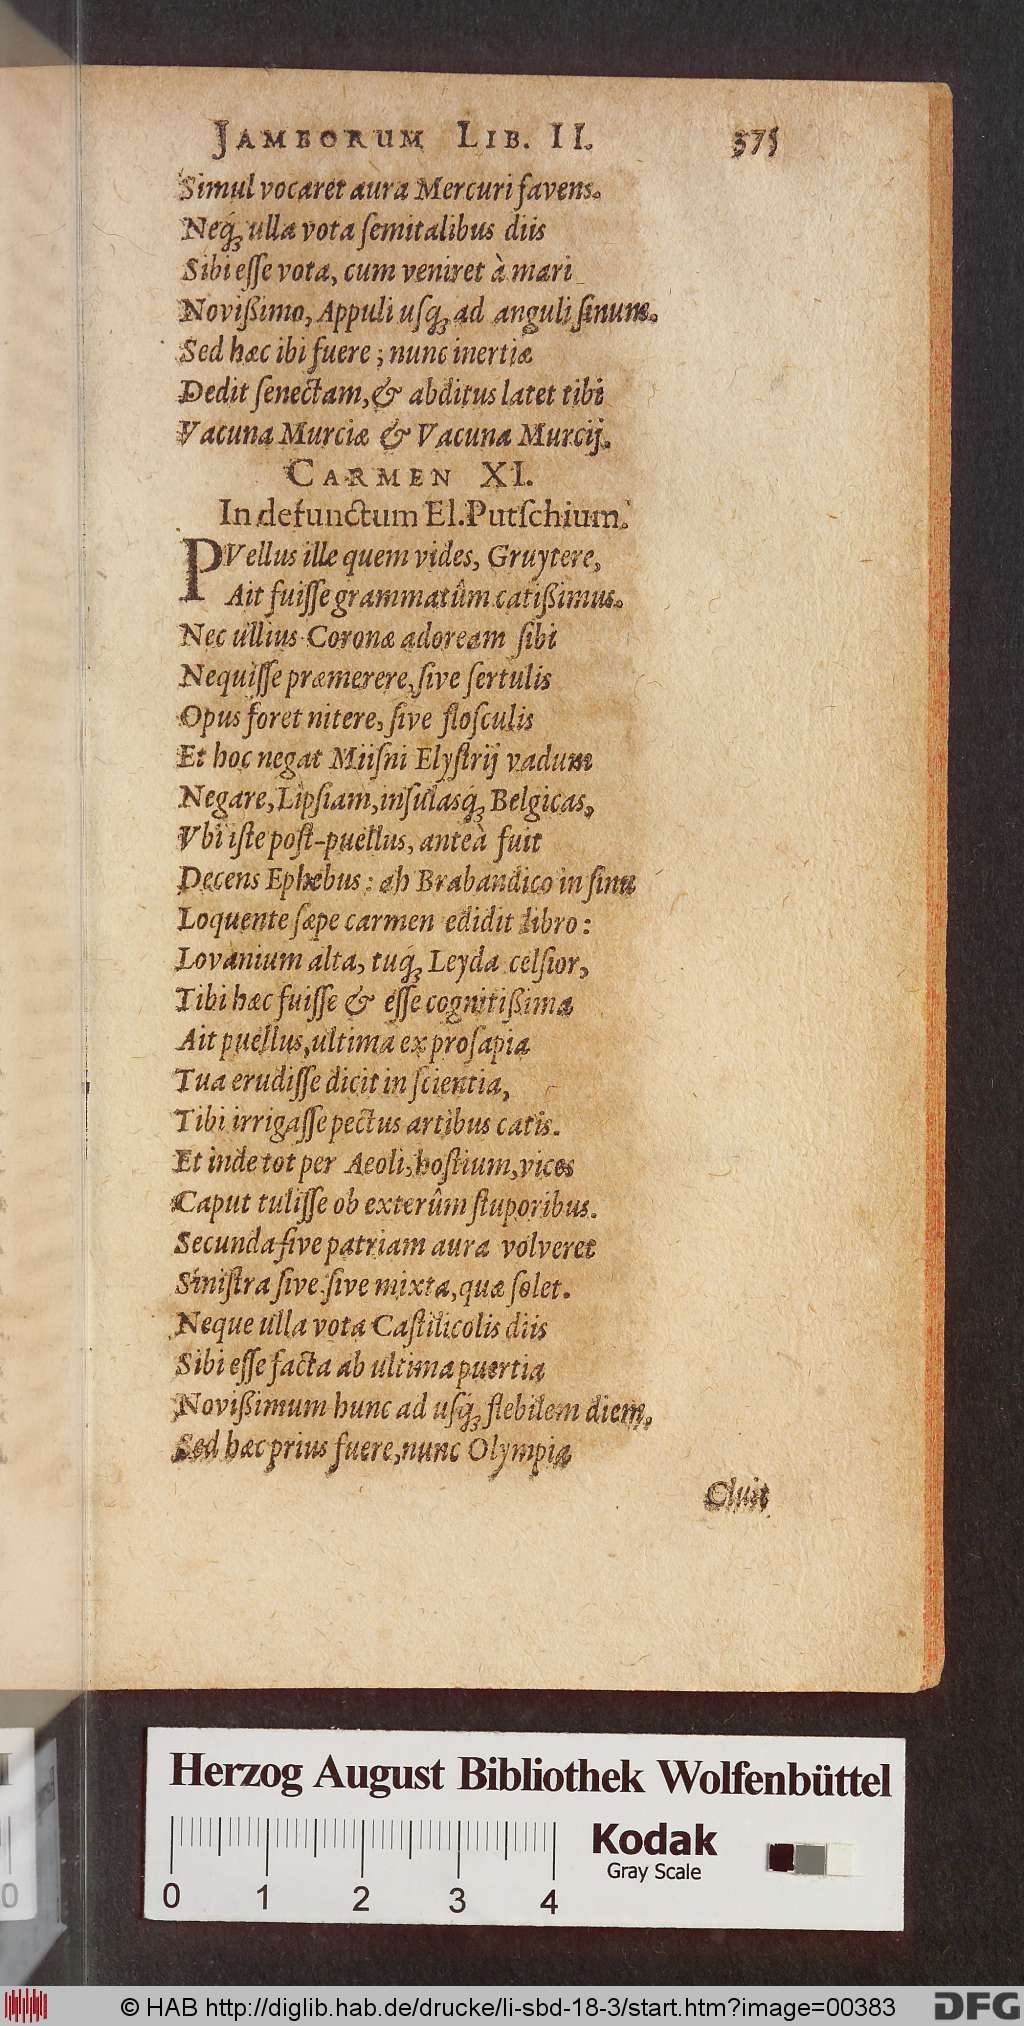 JAMBORUM LIB. II. 375
Simul vocaret aura Mercuri favens.
Neq́; ulla vota semitalibus diis
Sibi esse vota, cum veniret à mari
Novißimo, Appuli usq́; ad anguli sinum.
Sed hæc ibi fuere ; nunc inertiæ
Dedit senectam, & abditus latet tibi
Vacuna Murciæ & Vacuna Murcij.
CARMEN XI.
In defunctum El. Putschium.
PVellus ille quem vides, Gruytere,
Ait fuisse grammatûm catißimus.
Nec ullius Coronæ adoream sibi
Nequisse præmerere, sive sertulis
Opus foret nitere, sive flosculis
Et hoc negat Miisni Elystrij vadum
Negare, Lipsiam, insulasq́; Belgicas,
Vbi iste post-puellus, anteà fuit
Decens Ephebus : ah Brabandico in sinu
Loquente sæpe carmen edidit libro :
Lovanium alta, tuq́; Leyda celsior,
Tibi hæc fuisse & esse cognitißima
Ait puellus, ultima ex prosapia
Tua erudisse dicit in scientia,
Tibi irrigasse pectus artibus catis.
Et inde tot per Aeoli, hostium, vices
Caput tulisse ob exterûm stuporibus.
Secunda sive patriam aura volveret
Sinistra sive sive mixta, quæ solet.
Neque ulla vota Castilicolis diis
Sibi esse facta ab ultima puertia
Novißimum hunc ad usq́; flebilem diem,
Sed hæc prius fuere, nunc Olympia
Cluit
Herzog August Bibliothek Wolfenbüttel
Kodak
Gray Scale
0 1 2 3 4
© HAB http://diglib.hab.de/drucke/li-sbd-18-3/start.htm?image=00383
DFG